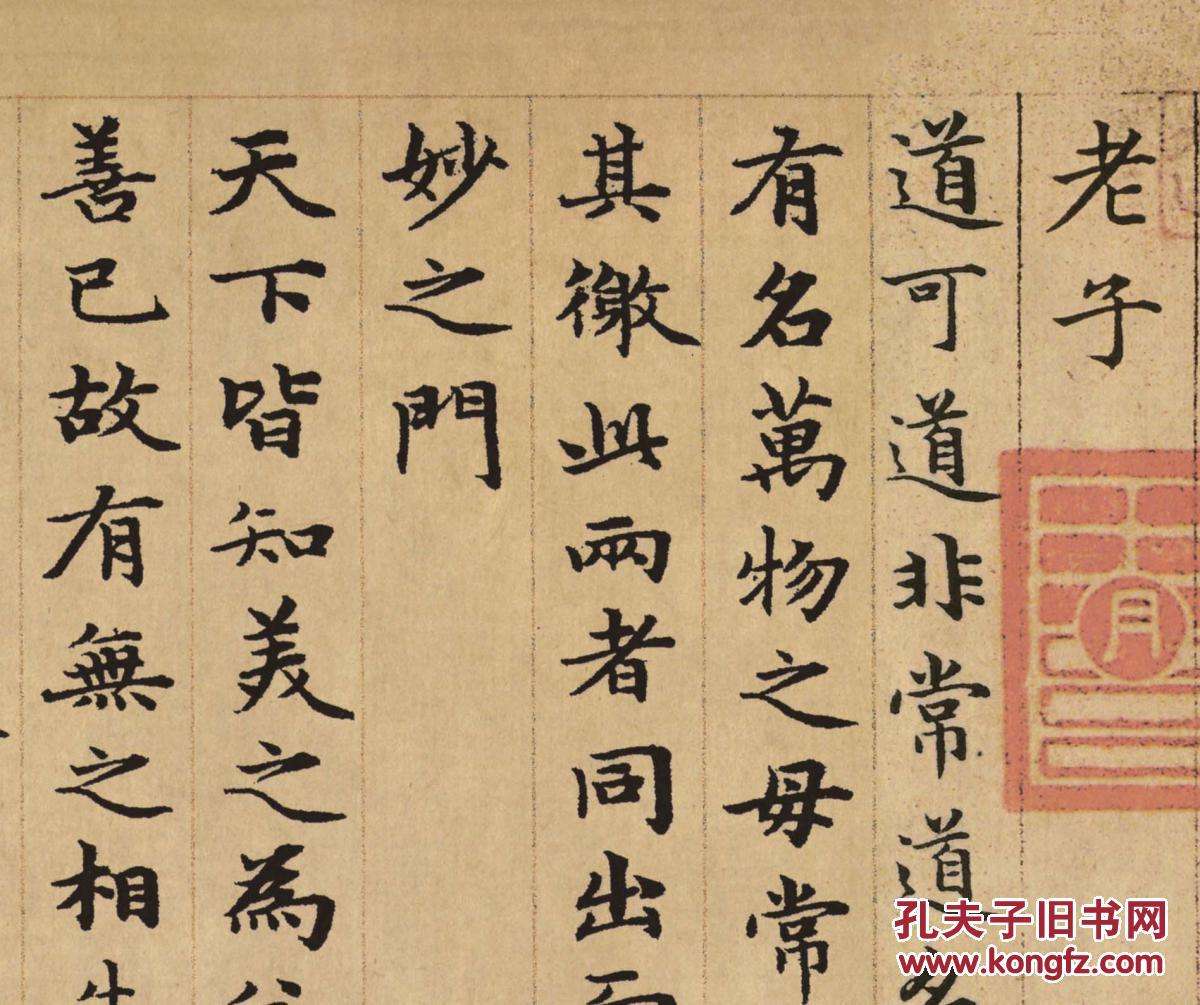 老子
道可道非常道
有名萬物之毋常
其徼此兩者同出
妙之門
天下皆知美之為
善已故有無之相
孔夫子旧书网
www.kongfz.com